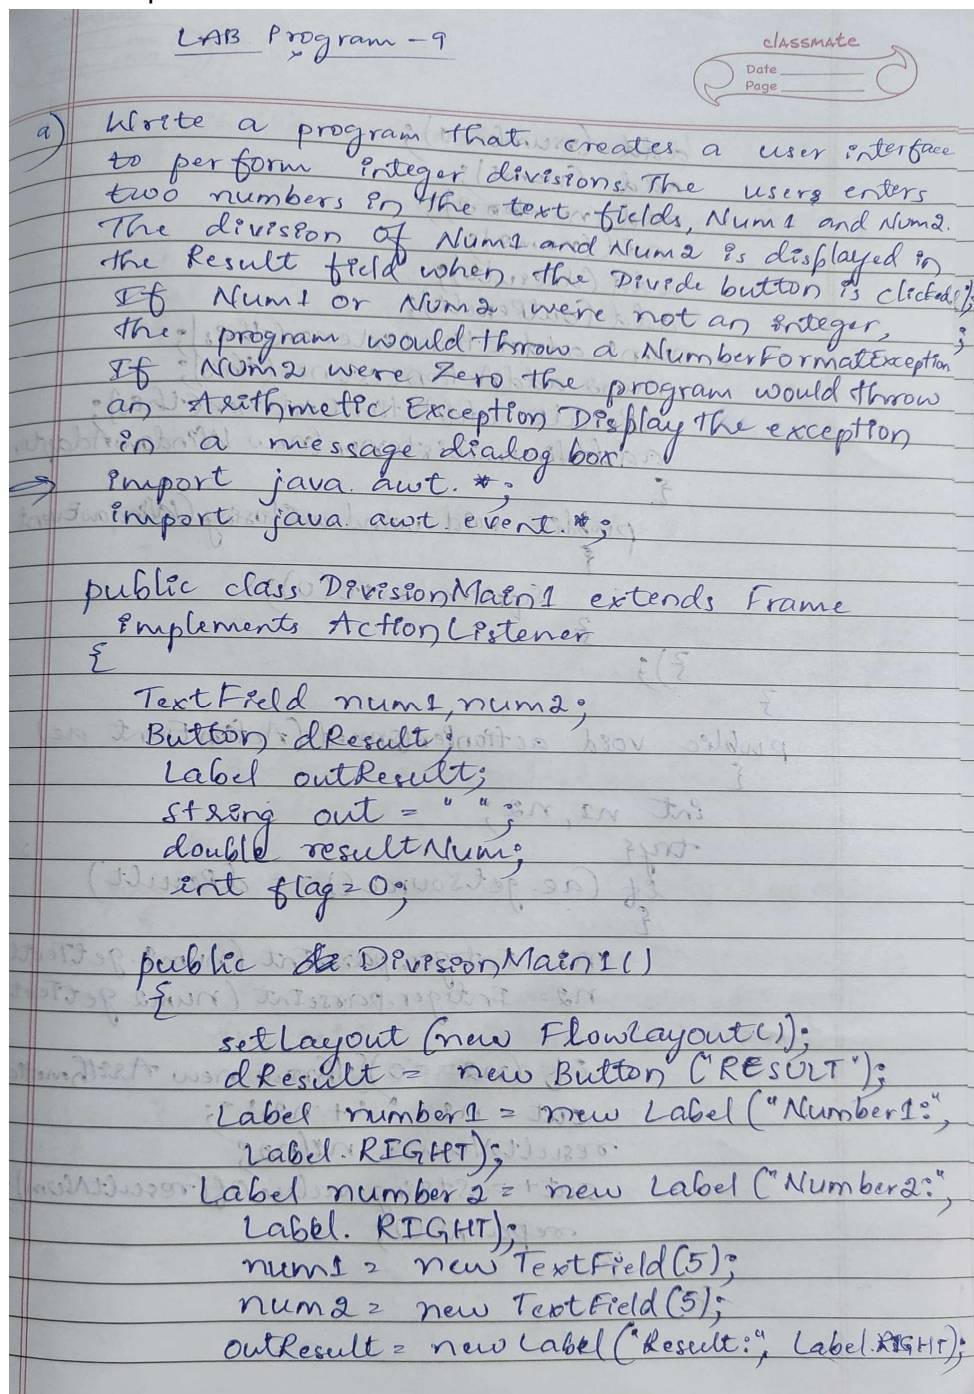 LAB Program - 9
classmate
Date
Page
a) Write a program that creates a user interface
to perform integer divisions. The users enters
two numbers in the text fields, Num1 and Num2.
The division of Num1 and Num2 is displayed in
the Result field when the Divide button is clicked.
If Num1 or Num2 were not an integer,
the program would throw a NumberFormatException
If Num2 were Zero the program would throw
an Arithmetic Exception Display the exception
in a message dialog box
⇒ import java.awt.*;
import java.awt.event.*;
public class DivisionMain1 extends Frame
implements ActionListener
{
TextField num1, num2;
Button dResult;
Label outResult;
string out = " ";
double resultNum;
int flag = 0;
public DivisionMain1()
{
setLayout (new FlowLayout());
dResult = new Button ("RESULT");
Label number1 = new Label ("Number1:",
Label.RIGHT);
Label number2 = new Label ("Number2:",
Label. RIGHT);
num1 = new TextField(5);
num2 = new TextField(5);
outResult = new Label ("Result:", Label.RIGHT);